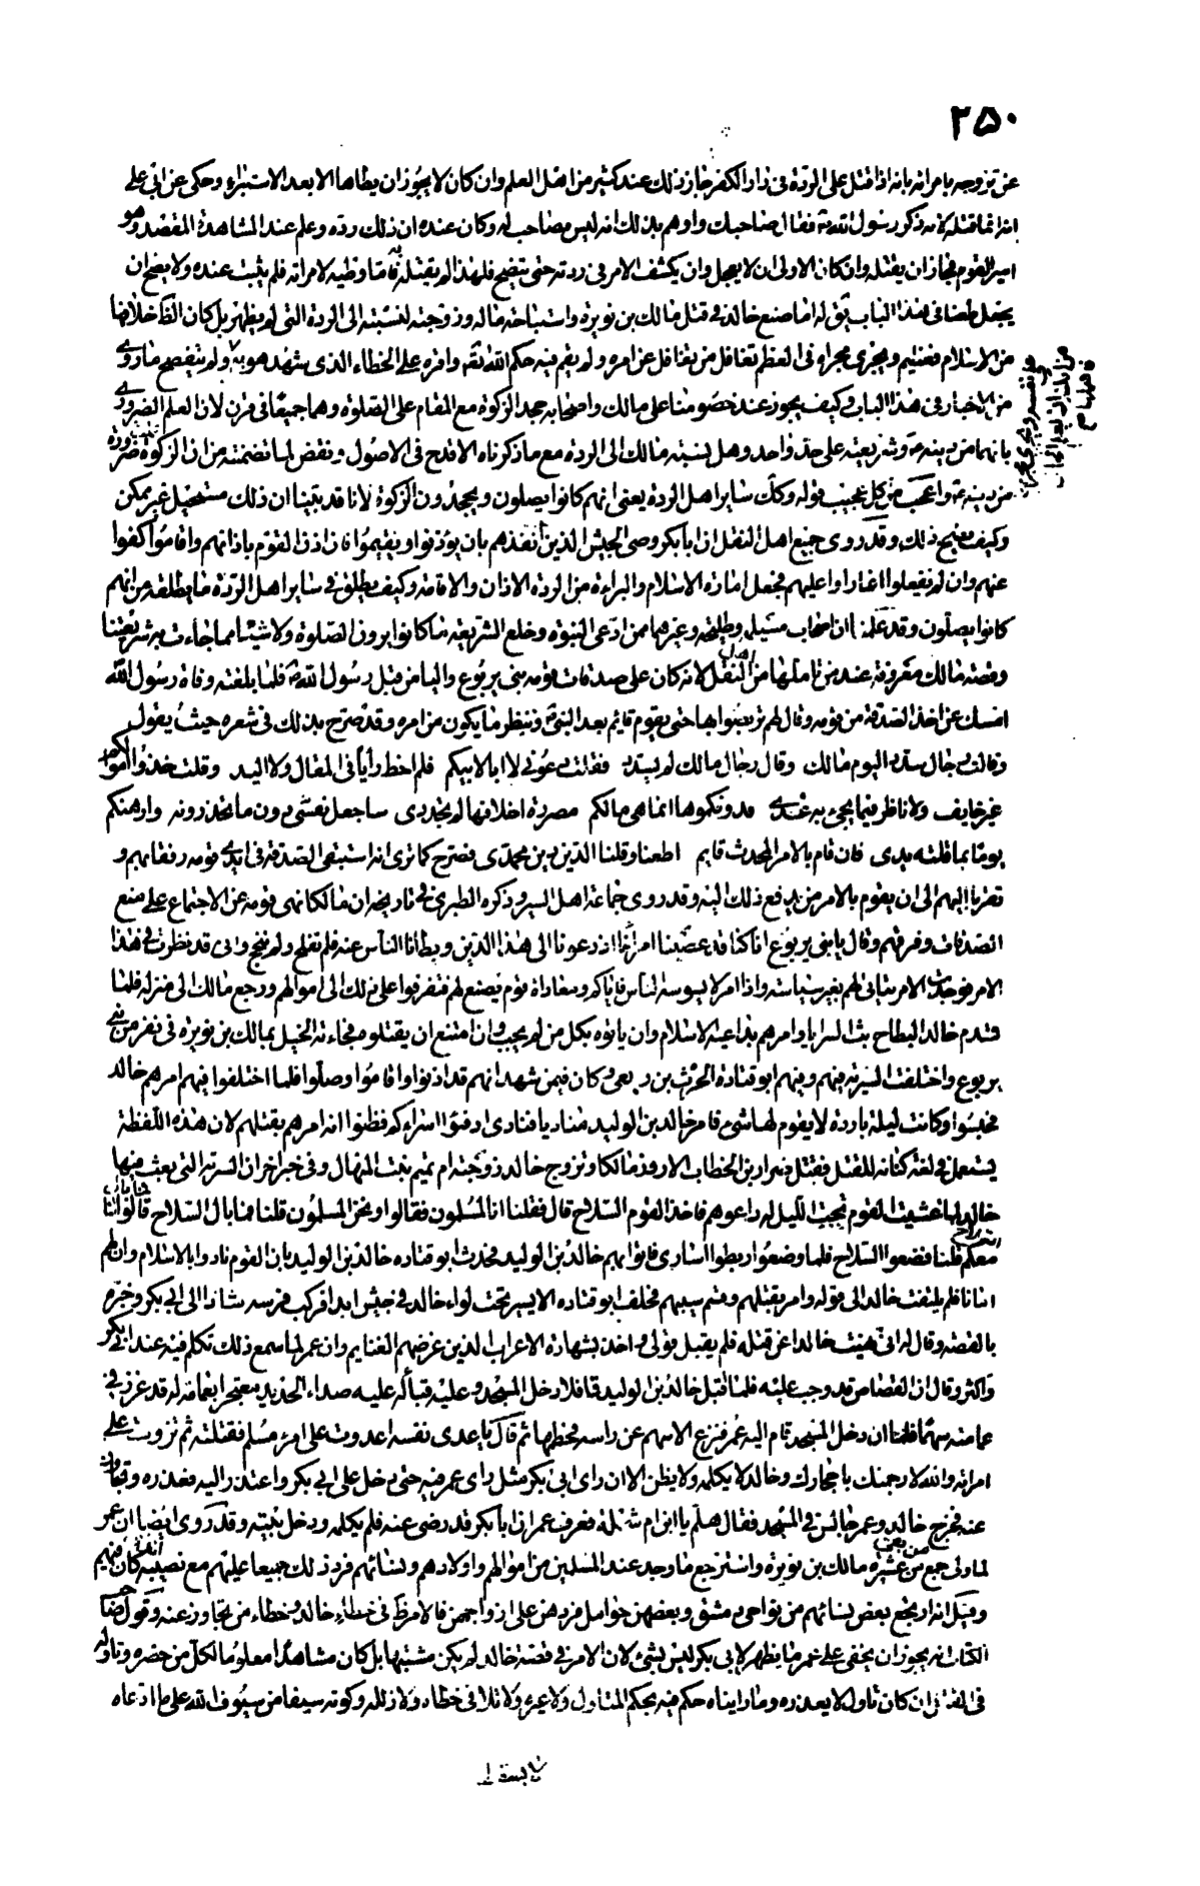 ٢٥٠
عن تزوجه بامرأته بانه اذا قتل على الردة فى دار الكفر جاز ذلك عند كثير من اهل العلم وان كان لا يجوز ان يطاها الا بعد الاستبراء وحكى عن ابى على
انه انما قتله لانه ذكر رسول الله ص فقال صاحبك واوهم بذلك انه ليس بصاحب له وكان عنده ان ذلك ردة وعلم عند المشاهدة المقصد وهو
امير القوم فجاز ان يقتله وان كان الاولى ان لا يعجل وان يكشف الامر فى ردته حتى يتضح فلهذا لم يقتله به فاما وطيه لامراته فلم يثبت عنده ولا يصح ان
يجعل طعنا فى هذا الباب يق له اما صنع خالد فى قتل مالك بن نويرة واستباحة ماله وزوجته لنسبته الى الردة التى لم يظهر بل كان الظ خلافها
من الاسلام فعظيم ويجرى مجراه فى العظم تغافل من تغافل عن امره ولم يقم فيه حكم الله تعه واقره على الخطاء الذى شهد هو به ولم يتصفح ما روى
من الاخبار فى هذا الباب وكيف يجوز عند خصومنا على مالك واصحابه جحد الزكوة مع المقام على الصلوة وهما جميعا فى قرن لان العلم الضرورى
بانهما من دينه ع وشريعته على حد واحد وهل نسبة مالك الى الردة مع ما ذكرناه الا قدح فى الاصول ونقض لما تضمنته من ان الزكوة معلومة ضرورة
من دينه ع واعجب من كل عجيب قوله وكك ساير اهل الردة يعنى انهم كانوا يصلون ويجحدون الزكوة لانا قد بينا ان ذلك مستحيل غير ممكن
وكيف يصح ذلك وقد روى جميع اهل النقل ان ابا بكر وصى الجيش الذين انفذهم بان يؤذنوا ويقيموا فان اذن القوم باذانهم واقاموا كفوا
عنهم وان لم يفعلوا اغاروا عليهم فجعل امارة الاسلام والبراءة من الردة الاذان والاقامة وكيف يطلق فى ساير اهل الردة ما يطلقه من انهم
كانوا يصلون وقد علمنا ان اصحاب مسيلمة وطليحة وغيرهما ممن ادعى النبوة وخلع الشريعة ما كانوا يرون الصلوة ولا شيئا مما جاءت به شريعتنا
وقصة مالك معروفة عند من تاملها من اهل النقل لانه كان على صدقات قومه بنى يربوع واليا من قبل رسول الله ص فلما بلغته وفاة رسول الله
امسك عن اخذ الصدقة من قومه وقال لهم تربصوا بها حتى يقوم قايم بعد النبى ص وننظر ما يكون من امره وقد صرح بذلك فى شعره حيث يقول
وقالت رجال سدد اليوم مالك وقال رجال مالك لم يسدد فقلت دعونى لا ابا لابيكم فلم اخط رأيا فى المقال ولا اليد وقلت خذوا اموالكم
غير خايف ولا ناظر فيما يجىء به غدى فدونكموها انما هى مالكم مصررة اخلافها لم تجددى ساجعل نفسى دون ما تحذرونه وارهنكم
يوما بما قلته يدى فان قام بالامر المحدث قايم اطعنا وقلنا الدين دين محمد ى فصرح كما ترى انه استبقى الصدقة فى ايدى قومه رفقا بهم و
تقربا اليهم الى ان يقوم بالامر من يدفع ذلك اليه وقد روى جماعة اهل السير وذكره الطبرى فى تاريخه ان مالكا نهى قومه عن الاجتماع على منع
الصدقات وفرقهم وقال يا بنى يربوع انا كنا قد عصينا امراءنا اذ دعونا الى هذا الدين وبطأنا الناس عنه فلم نفلح ولم ننجح وانى قد نظرت فى هذا
الامر فوجدت الامر يتاتى لهم بغير سياسة واذا امر لا يسوسه الناس فاياكم ومعاداة قوم يصنع لهم فتفرقوا على ذلك الى اموالهم ورجع مالك الى منزله فلما
قدم خالد البطاح بث السرايا وامرهم بداعية الاسلام وان ياتوه بكل من لم يجب وان امتنع ان يقتلوه فجاءته الخيل بمالك بن نويرة فى نفر من بنى
يربوع واختلفت السرية فيهم وفيهم ابو قتادة الحرث بن ربعى وكان فيمن شهد انهم قد اذنوا واقاموا وصلوا فلما اختلفوا فيهم امر بهم خالد
فحبسوا وكانت ليلة باردة لا يقوم لها شىء فامر خالد بن الوليد مناديا فنادى ادفئوا اسراءكم فظنوا انه امرهم بقتلهم لان هذه اللفظة
يستعمل فى لغة كنانة للقتل فقتل ضرار بن الخطاب الازور مالكا وتزوج خالد زوجته ام تميم بنت المنهال وفى خبر اخر ان السرية التى بعث فيها
خالد لما غشيت القوم تحت الليل راعوهم فاخذ القوم السلاح قال فقلنا انا المسلمون فقالوا ونحن المسلمون قلنا فما بال السلاح قالوا لنا
معكم قلنا فضعوا السلاح فلما وضعوا ربطوا اسارى فاتوا بهم خالد بن الوليد فحدث ابو قتاده خالد بن الوليد بان القوم نادوا بالاسلام وان لهم
امانا فلم يلتفت خالد الى قوله وامر بقتلهم وقسم سبيهم فحلف ابو قتاده الا يسير تحت لواء خالد فى جيش ابدا فركب فرسه شاذا الى ابى بكر وخبره
بالقصة وقال له انى نهيت خالدا عن قتله فلم يقبل قولى واخذ بشهادة الاعراب الذين غرضهم الغنايم وان عمر لما سمع ذلك تكلم فيه عند ابى بكر
واكثر وقال ان القصاص قد وجب عليه فلما اقبل خالد بن الوليد قافلا دخل المسجد وعليه قبأ له عليه صداء الحديد معتجرا بعمامة له قد غرز فى
عمامته سهما فلما ان دخل المسجد قام اليه عمر فنزع الاسهم عن راسه فحطمها ثم قال يا عدى نفسه اعدوت على امرء مسلم فقتلته ثم نزوت على
امراته والله لارجمنك باحجارك وخالد لا يكلمه ولا يظن الا ان راى ابى بكر مثل راى عمر فيه حتى دخل على ابى بكر واعتذر اليه فعذره وتجاوز
عنه فخرج خالد وعمر جالس فى المسجد فقال هلم يا ابن ام شملة فعرف عمر ان ابا بكر قد رضى عنه فلم يكلمه ودخل بيته وقد روى ايضا ان عمر
لما ولى جمع من عشيرة مالك بن نويرة واسترجع ما وجد عند المسلمين من اموالهم واولادهم ونسائهم فرد ذلك جميعا عليهم مع نصيبه كان فيهم
وقيل انه ارتجع بعض نسائهم من نواحى دمشق وبعضهن حوامل فردهن على ازواجهن فالامر ظ فى خطاء خالد وخطاء من تجاوز عنه وقول صاحب
الكتاب انه يجوز ان يخفى على عمر ما يظهر لابى بكر ليس بشىء لان الامر فى قصة خالد لم يكن مشتبها بل كان مشاهدا معلوما لكل من حضره وتاوله
فى القتل ان كان تاول لا يعذره وما رايناه حكم فيه بحكم المتاول ولا غيره ولا تلافى خطاه وزلله وكونه سيفا من سيوف الله على ما ادعاه
لا يسقط